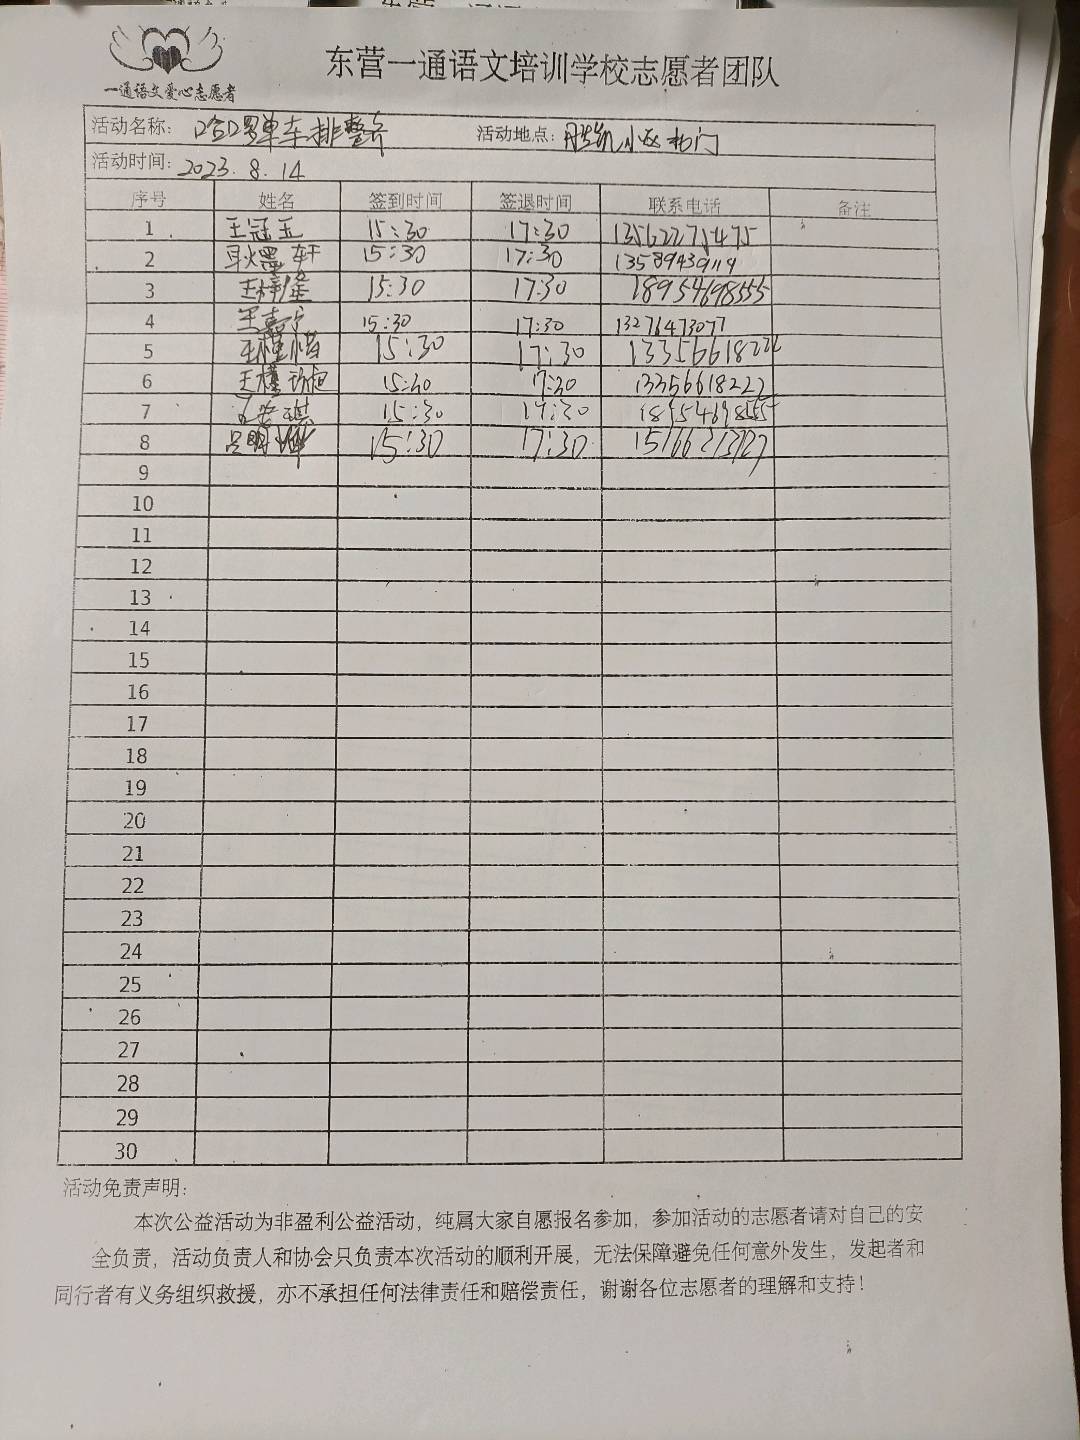 东营一通语文培训学校志愿者团队
一通语文爱心志愿者
活动名称: 哈啰单车排整齐 活动地点: 胜凯小区北门
活动时间: 2023.8.14
序号 姓名 签到时间 签退时间 联系电话 备注
1 王冠玉 15:30 17:30 13562275475
2 耿墨轩 15:30 17:30 13589439119
3 15:30 17:30 18954698555
4 王嘉宁 15:30 17:30 13276473077
5 15:30 17:30 13356618222
6 15:30 17:30 13356618222
7 15:30 17:30 18954698555
8 吕明 15:30 17:30 15166213727
9
10
11
12
13
14
15
16
17
18
19
20
21
22
23
24
25
26
27
28
29
30
活动免责声明:
本次公益活动为非盈利公益活动，纯属大家自愿报名参加，参加活动的志愿者请对自己的安
全负责，活动负责人和协会只负责本次活动的顺利开展，无法保障避免任何意外发生，发起者和
同行者有义务组织救援，亦不承担任何法律责任和赔偿责任，谢谢各位志愿者的理解和支持！